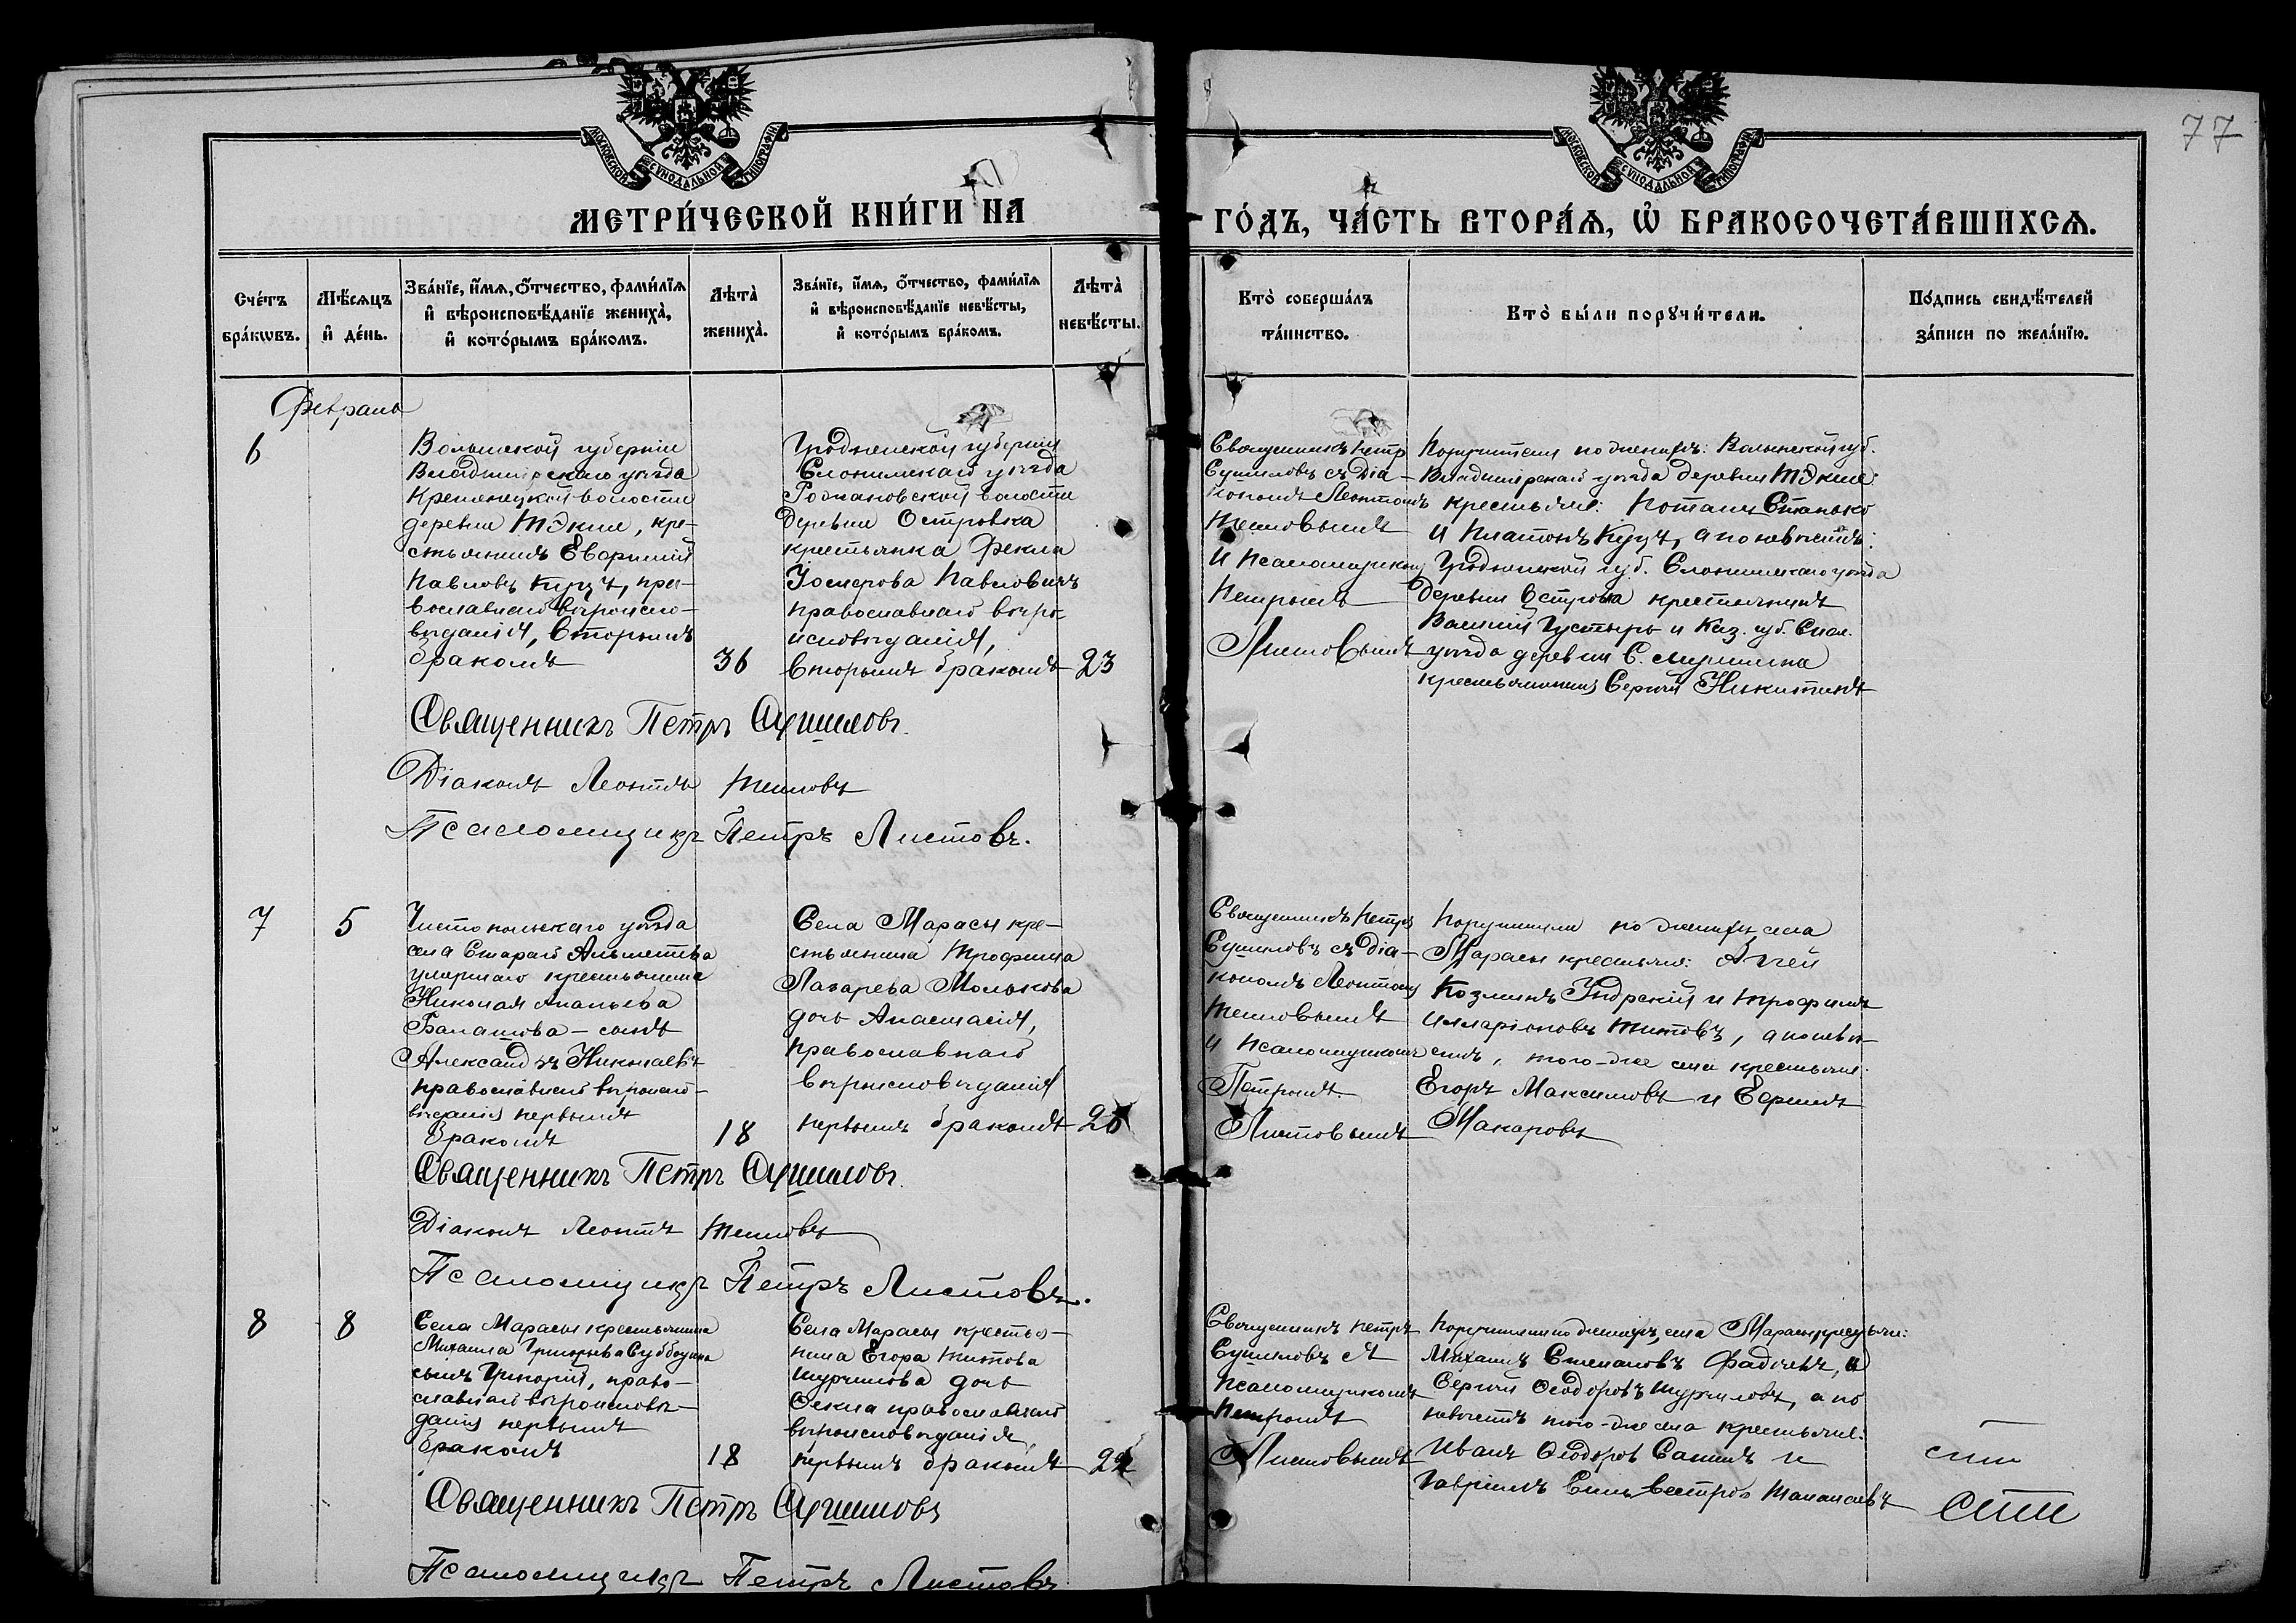 77
МОСКОВСКОЙ СѴНОДАЛЬНОЙ ТИПОГРАФІИ
МОСКОВСКОЙ СѴНОДАЛЬНОЙ ТИПОГРАФІИ
МЕТРИ́ЧЕСКОЙ КНИ́ГИ НА
ГО́ДЪ, ЧА́СТЬ ВТОРА́Я, Ѡ БРАКОСОЧЕТА́ВШИХСЯ.
Сче́тъ
бра́кѡвъ.
Мѣ́сяцъ
и҆ де́нь.
Зва́нїе, и҆́мя, ѻ҆́тчество, фами́лїя
и҆ вѣроисповѣ́данїе жениха̀,
и҆ кото́рымъ бра́комъ.
Лѣта̀
жениха̀.
Зва́нїе, и҆́мя, ѻ҆́тчество, фами́лїя
и҆ вѣроисповѣ́данїе невѣ́сты,
и҆ кото́рымъ бра́комъ.
Лѣта̀
невѣ́сты.
Кто̀ соверша́лъ
та́инство.
Кто̀ бы́ли порꙋчи́тели.
По́дпись свидѣ́телей
за́писи по жела́нїю.
Февраль
6
Волынской губерніи
Владимірскаго уѣзда
волости
деревни кре-
стьянинъ
Павловъ Куцъ, пра-
вославнаго вѣроиспо-
вѣданія, вторымъ
бракомъ
36
Гродненской губерніи
Слонимскаго уѣзда
волости
деревни Островка
крестьянка Фекла
Павловичъ
православнаго вѣро-
исповѣданія,
вторымъ бракомъ
23
Священникъ Петръ
Сушиловъ съ Діа-
кономъ Леонтомъ
Тепловымъ
и Псаломщикомъ
Петромъ
Листовымъ
Поручители по женихѣ: Волынской губ.
Владимірскаго уѣзда деревни
крестьяне: Потапъ Станько
и Платонъ Куцъ, а по невѣстѣ:
Гродненской губ. Слонимскаго уѣзда
деревни Островка крестьянинъ
Василій и Каз. губ. Спас.
уѣзда деревни
крестьянинъ Сергій Никитинъ
Священникъ Петръ Сушиловъ.
Діаконъ Леонтъ Тепловъ
Псаломщикъ Петръ Листовъ.
7
5
Чистопольскаго уѣзда
села Старой Альметева
умершаго крестьянина
Николая Ананьева
Балашова – сынъ
Александръ Николаевъ
православнаго вѣроиспо-
вѣданія первымъ
бракомъ
18
Села Марасы кре-
стьянина Трофима
Лазарева Молькова
дочь Анастасія,
православнаго
вѣроисповѣданія
первымъ бракомъ
Священникъ Петръ
Сушиловъ съ Діа-
кономъ Леонтомъ
Тепловымъ
и Псаломщикомъ
Петромъ
Листовымъ
Поручители по женихѣ села
Марасы крестьяне:
Козминъ и Трофимъ
Илларіоновъ Титовъ, а по невѣ-
стѣ, того-же села крестьяне:
Егоръ Максимовъ и Ефимъ
Макаровъ
Священникъ Петръ Сушиловъ.
Діаконъ Леонтъ Тепловъ
Псаломщикъ Петръ Листовъ.
8
8
Села Марасы крестьянина
Михаила Григорьева
сынъ Григорій, право-
славнаго вѣроисповѣ-
данія первымъ
бракомъ
18
Села Марасы крестья-
нина Егора Титова
дочь
Ѳекла православнаго
вѣроисповѣданія,
первымъ бракомъ
Священникъ Петръ
Сушиловъ съ
Псаломщикомъ
Петромъ
Листовымъ
Поручители по женихѣ, села Марасы крестьяне:
Михаилъ Степановъ Фадѣевъ, и
Сергій Ѳеодоровъ а по
невѣстѣ того-же села крестьяне:
Иванъ Ѳеодоровъ и
Гавріилъ
Священникъ Петръ Сушиловъ
Псаломщикъ Петръ Листовъ